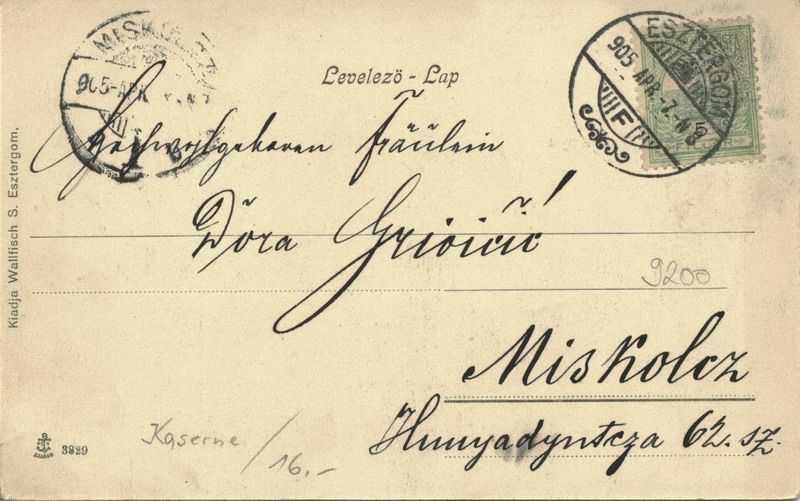 MISKOLCZ
905-APR
ESZTERGOM
905 APR.-7.-N8
F
Levelező - Lap
Hochwolgeboren Fräulein
Dóra
9200
Miskolcz
Hunyadyutcza 62. sz.
Kaserne / 16.-
3829
Kiadja Wallfisch S. Esztergom.